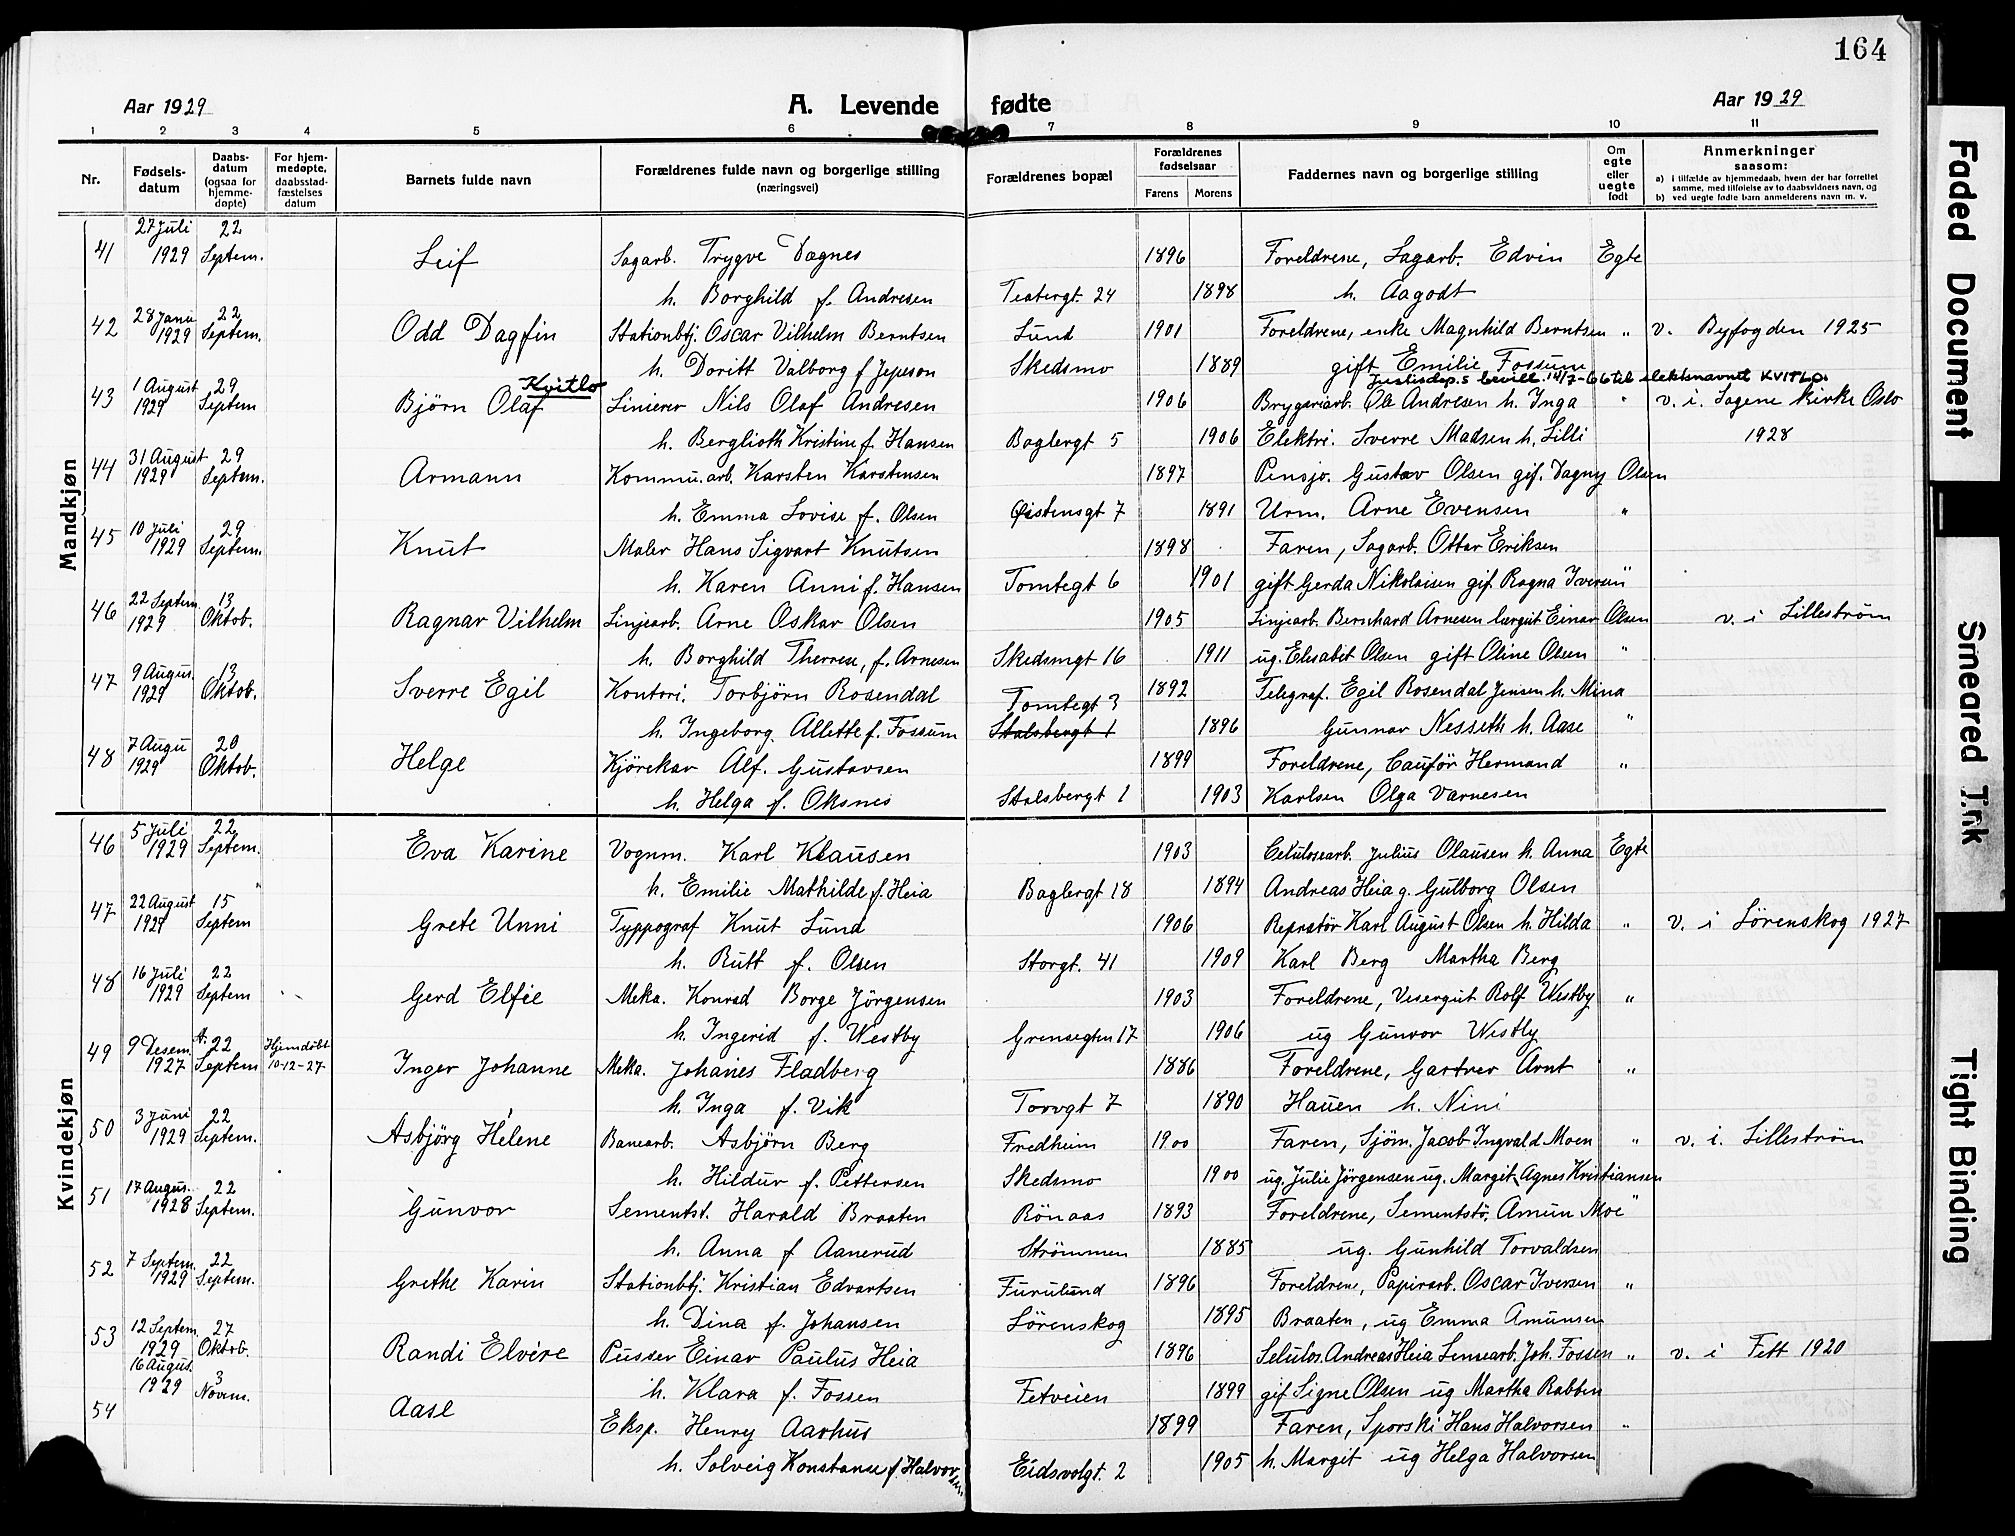 164
Aar 1929
A. Levende fødte
Aar 1929
1 2 3 4 5 6 7 8 9 10 11
Nr.
Fødsels-
datum
Daabs-
datum
(ogsaa for
hjemme-
døpte)
For hjem-
medøpte,
daabsstad-
fæstelses
datum
Barnets fulde navn
Forældrenes fulde navn og borgerlige stilling
(næringsvei)
Forældrenes bopæl
Forældrenes
fødselsaar
Farens Morens
Faddernes navn og borgerlige stilling
Om
egte
eller
uegte
født
Anmerkninger
saasom:
a) i tilfælde av hjemmedaab, hvem der har forrettet
samme, med tilføielse av to daabsvidners navn, og
b) ved uegte fødte barn anmelderens navn m. v.
Mandkjøn
27 Juli 22
41 1929 Septem. Leif Sagarb. Trygve Dagnes 1896 Foreldrene, Sagarb. Edvin Egte
h. Borghild f. Andresen Teatergt. 24 1898 h. Aagodt
28 Janu 22
42 1929 Septem. Odd Dagfin Stationbtj. Oscar Vilhelm Berntsen Lund 1901 Foreldrene, enke Magnhild Berntsen " v. Byfogden 1925
h. Doritt Valborg f Jepeson Skedsmo 1889 gift Emilie Fossum
Kvitlo Justisdep.s bevill. 14/7-66 til slektsnavnet KVITLO.
1 August 29
43 1929 Septem Bjørn Olaf Linierer Nils Olaf Andresen 1906 Bryggeriarb. Ole Andresen h. Inga " v. i. Sagene kirke Oslo
h. Berglioth Kristine f. Hansen Baglergt 5 1906 Elektri. Sverre Madsen h. Lilli 1928
31 August 29
44 1929 Septem. Armann Kommu.arb. Karsten Karstensen 1897 Pensjo. Gustav Olsen gif. Dagny Olsen
h. Emma Lovise f. Olsen Øistensgt 7 1891 Urm. Arne Evensen "
10 Juli 29
45 1929 Septem. Knut Maler Hans Sigvart Knutsen 1898 Faren, Sagarb. Ottar Eriksen
h. Karen Anni f. Hansen Tomtegt 6 1901 gift Gerda Nikolaisen gif. Ragna Iversen "
22 Septem. 13
46 1929 Oktob. Ragnar Vilhelm Linjearb. Arne Oskar Olsen 1905 Linjearb. Bernhard Arnesen lærgut Einar Olsen v. i Lillestrøm
h. Borghild Therrese, f. Arnesen Skedsmgt 16 1911 ug. Elisabet Olsen gift Oline Olsen "
9 Augus. 13
47 1929 Oktob. Sverre Egil Kontori. Torbjørn Rosendal Tomtegt 3 1892 Telegraf. Egil Rosendal Jensen h. Mina
h. Ingeborg Allette f. Fossum Stalsbergt 1 1896 Gunnar Nesseth h. Aase "
7 Augu 20
48 1929 Oktob. Helge Kjörekar Alf. Gustavsen 1899 Foreldrene, Caufør Hermand "
h. Helga f. Oksnes Stalsbergt 1 1903 Karlsen Olga Varnesen
Kvindekjøn
5 Juli 22
46 1929 Septem. Eva Karine Vognm. Karl Klausen 1903 Celulosearb. Julius Olausen h. Anna Egte
h. Emilie Mathilde f. Heia Baglergt 18 1894 Andreas Heia g. Gulborg Olsen
22 August 15
47 1929 Septem Grete Unni Typpograf Knut Lund 1906 Repratør Karl August Olsen h. Hilda " v. i Lørenskog 1927
h. Rutt f. Olsen Storgt. 41 1909 Karl Berg Martha Berg
16 Juli 22
48 1929 Septem Gerd Elfie Meka. Konrad Borge Jörgensen 1903 Foreldrene, Visergut Rolf Westby "
h. Ingerid f. Westby Grensegten 17 1906 ug Gunvor Westby
9 Desem. A. 22 Hjemdöbt
49 1927 Septem 10-12-27 Inger Johanne Meka. Johanes Fladberg 1886 Foreldrene, Gartner Arnt "
h. Inga f. Vik Torvgt 7 1890 Hauen h. Nini
3 Juni 22
50 1929 Septem. Asbjörg Helene Banearb. Asbjørn Berg Fredheim 1900 Faren, Sjöm. Jacob Ingvald Moen " v. i. Lillestrøm
h. Hildur f. Pettersen Skedsmo 1900 ug. Julie Jörgensen ug. Margit Agnes Kristiansen
17 Augus. 22
51 1928 Septem. Gunvor Sementst. Harald Braaten Rönaas 1893 Foreldrene, Sementstö. Amun Moe "
h. Anna f Aanerud Strømmen 1885 ug. Gunhild Torvaldsen
7 Septem. 22
52 1929 Septem. Grethe Karin Stationbtj. Kristian Edvartsen Furulund 1896 Foreldrene, Papirarb. Oscar Iversen "
h. Dina f. Johansen Lørenskog 1895 Braaten, ug Emma Amunsen
12 Septem 27
53 1929 Oktob. Randi Elvire Pusser Einar Paulus Heia 1896 Selulos. Andreas Heia Sensearb. Joh. Fossen " v. i Fett 1920
h. Klara f. Fossen Fetveien 1899 gif Signe Olsen ug Martha Rabben
16 Augus. 3
54 1929 Novem. Aase Eksp. Henry Aarhus 1899 Faren, Sporski Hans Halvorsen "
h. Solveig Konstanse f. Halvorsen Eidsvolgt. 2 1905 h. Margit ug Helga Halvorsen
Faded Document
Smeared Ink
Tight Binding